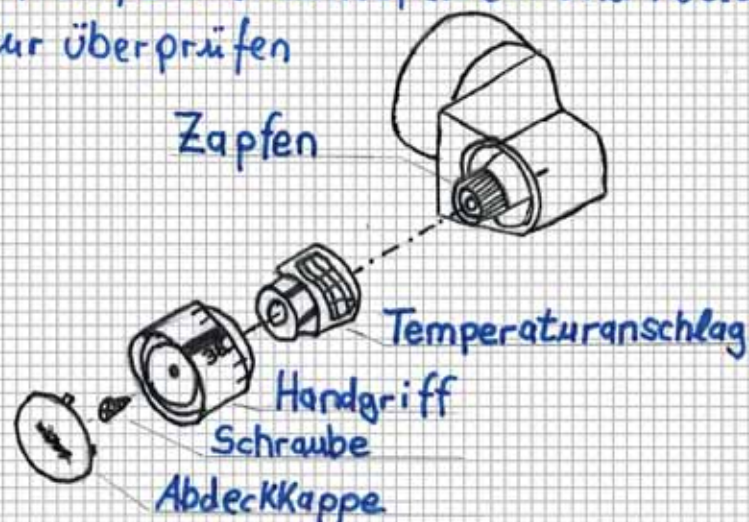 ur überprüfen
Zapfen
Temperaturanschlag
38
Handgriff
Schraube
Abdeckkappe